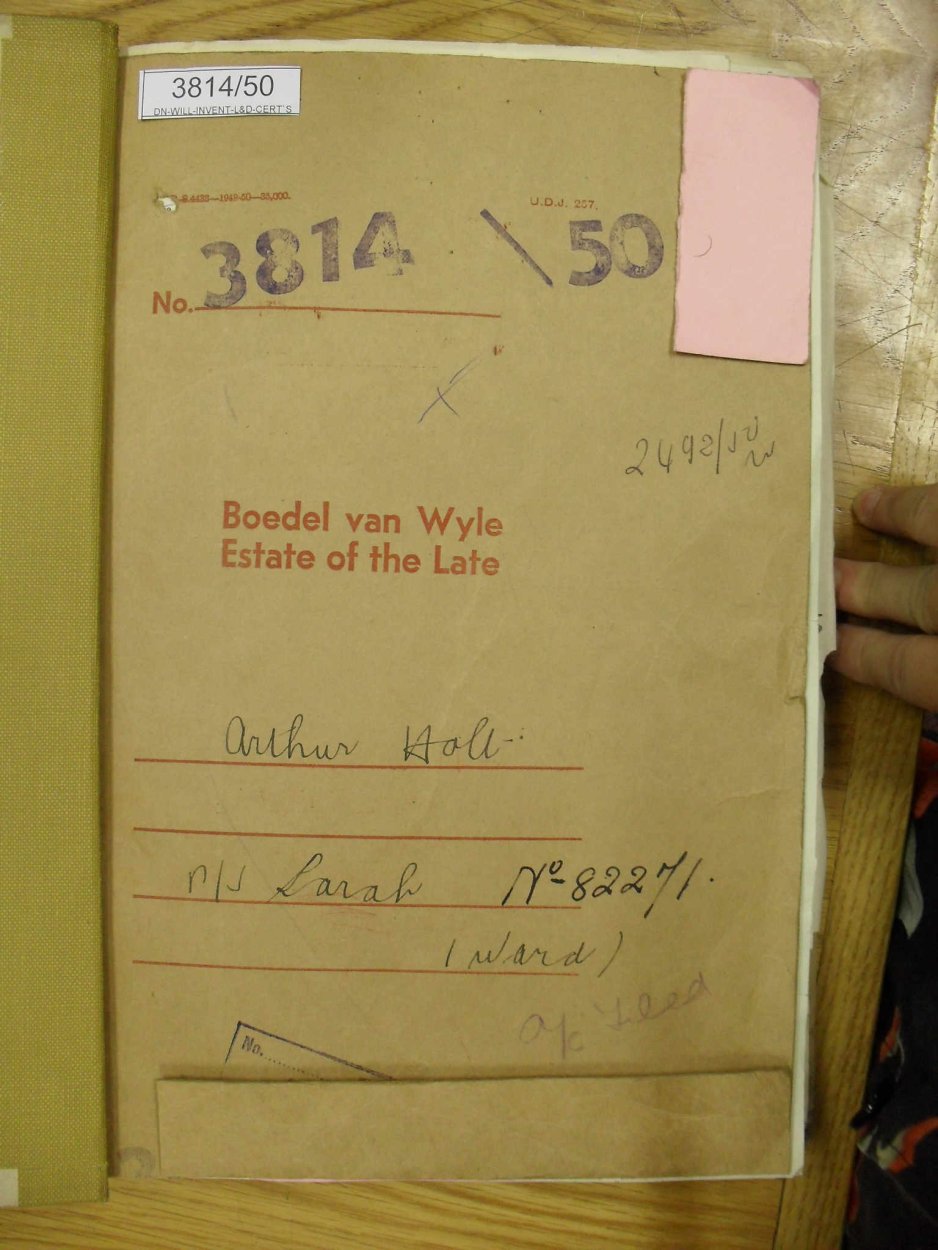 3814/50
DN-WILL-INVENT-L&D-CERT'S
1949-50—35,000.
U.D.J. 257.
No. 3814 \ 50
2492/50
Boedel van Wyle
Estate of the Late
Arthur Holt
Sarah No 82271.
(Ward)
a/c Filed
No.